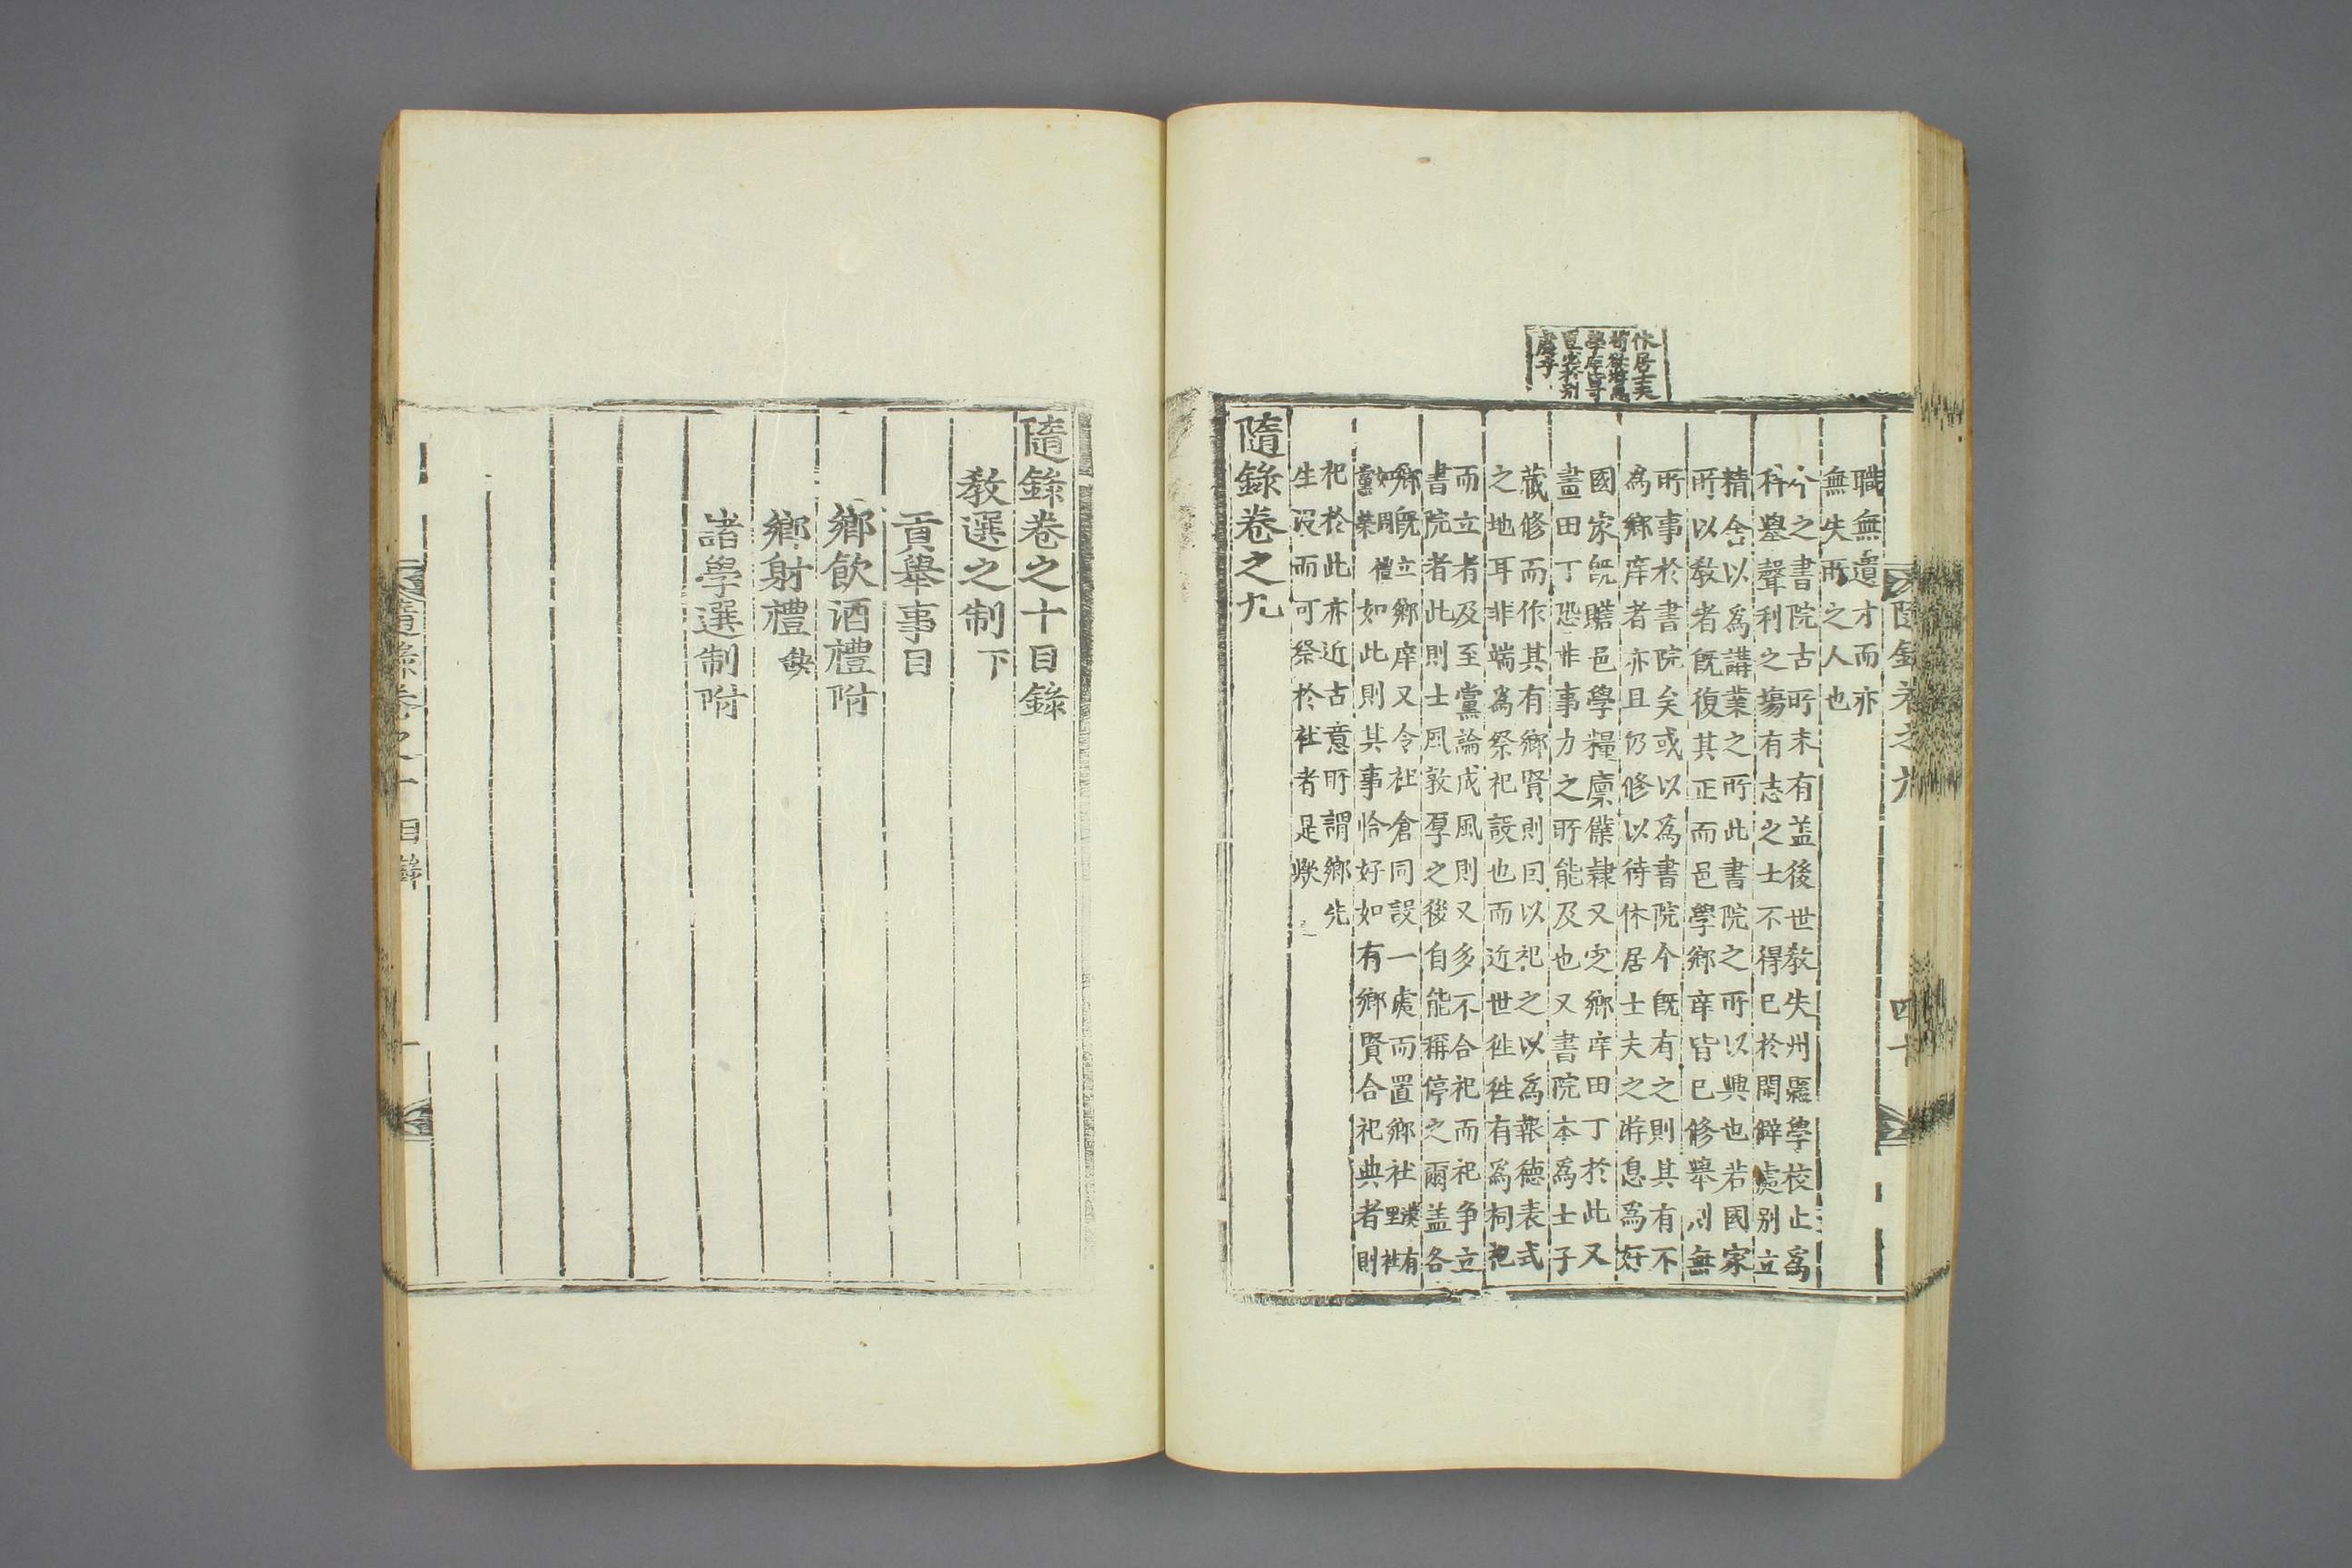 休居士夫
學庠專
置塾別
處乎
隨錄卷之九
四十
職無遺才而亦
無失所之人也
今之書院古所未有盖後世敎失州縣學校止爲
科擧聲利之場有志之士不得已於閑僻處別立
精舍以爲講業之所此書院之所以興也若國家
所以敎者旣復其正而邑學鄉庠皆已修擧則無
所事於書院矣或以爲書院今旣有之則其有不
爲鄉庠者亦且仍修以待休居士夫之游息爲好
國家旣贍邑學糧廩僕隷又定鄉庠田丁於此又
畫田丁恐非事力之所能及也又書院本爲士子
藏修而作其有鄉賢則曰以祀之以爲報德表式
之地耳非端爲祭祀設也而近世徃徃有爲祠祀
而立者及至黨論成風則又多不合祀而祀爭立
書院者此則士風敦厚之後自能稱停之爾盖各
鄉旣立鄉庠又令社倉同設一處而置鄉社漢有里社
如周禮黨禜如此則其事恰好如有鄉賢合祀典者則
祀於此亦近古意所謂鄉先
生沒而可祭於社者是歟
隨錄卷之九
隨錄卷之十目錄
敎選之制下
貢擧事目
鄉飮酒禮附
鄉射禮缺
諸學選制附
隨錄卷之十 目錄
一